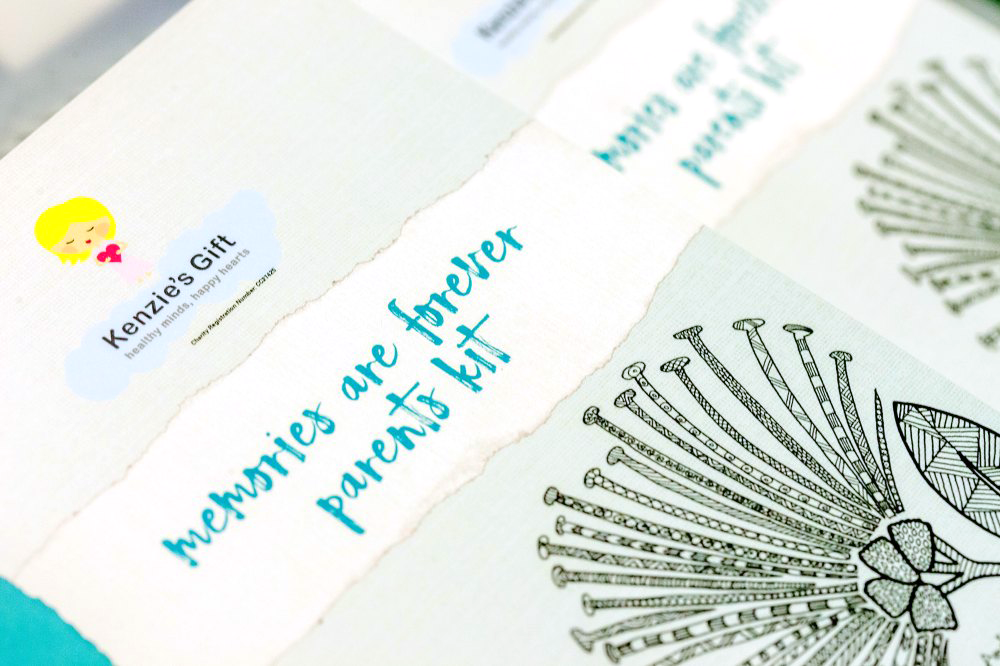 Kenzie's Gift
healthy minds, happy hearts
Charity Registration Number: CC37425
memories are forever
parents kit
memories are
parents kit